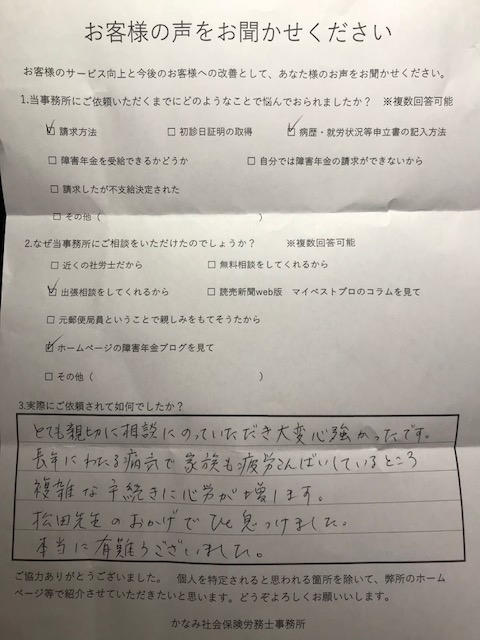 お客様の声をお聞かせください
お客様のサービス向上と今後のお客様への改善として、あなた様のお声をお聞かせください。
1.当事務所にご依頼いただくまでにどのようなことで悩んでおられましたか？ ※複数回答可能
☑ 請求方法 □ 初診日証明の取得 ☑ 病歴・就労状況等申立書の記入方法
□ 障害年金を受給できるかどうか □ 自分では障害年金の請求ができないから
□ 請求したが不支給決定された
□ その他（ ）
2.なぜ当事務所にご相談をいただけたのでしょうか？ ※複数回答可能
□ 近くの社労士だから □ 無料相談をしてくれるから
☑ 出張相談をしてくれるから □ 読売新聞web版 マイベストプロのコラムを見て
□ 元郵便局員ということで親しみをもてそうたから
☑ ホームページの障害年金ブログを見て
□ その他（ ）
3.実際にご依頼されて如何でしたか？
とても親切に相談にのっていただき大変心強かったです。
長年にわたる病気で家族も疲労こんぱいしているところ
複雑な手続きに心労が増します。
松田先生のおかげでひと息つけました。
本当に有難うございました。
ご協力ありがとうございました。 個人を特定されると思われる箇所を除いて、弊所のホーム
ページ等で紹介させていただきたいと思います。どうぞよろしくお願いいします。
かなみ社会保険労務士事務所